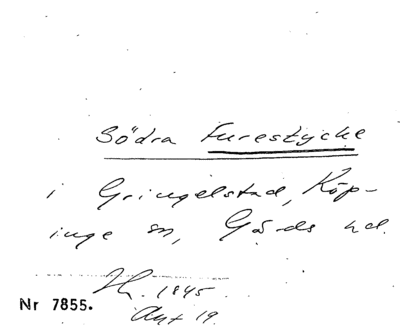 Södra Furestycke
i Gringelstad, Köp-
inge sn, Gärds hd.
1845
Akt 19.
Nr 7855.